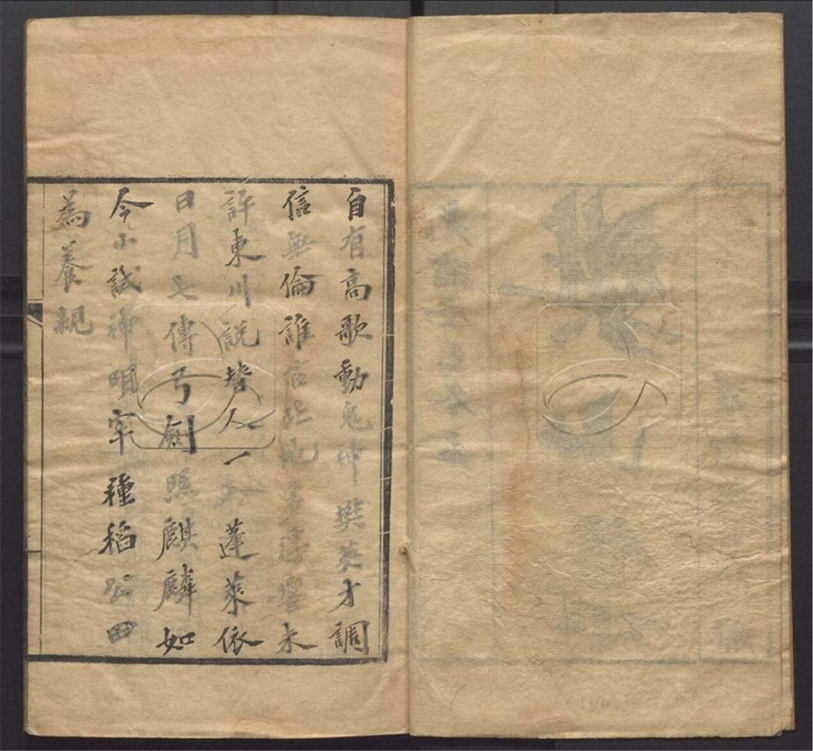 自有高歌動鬼神樊英才調
信無倫誰地未
許東川說替人一水蓬萊依
日月七傳弓劍照麒麟如
今小試神明宰種稻公田
為養親